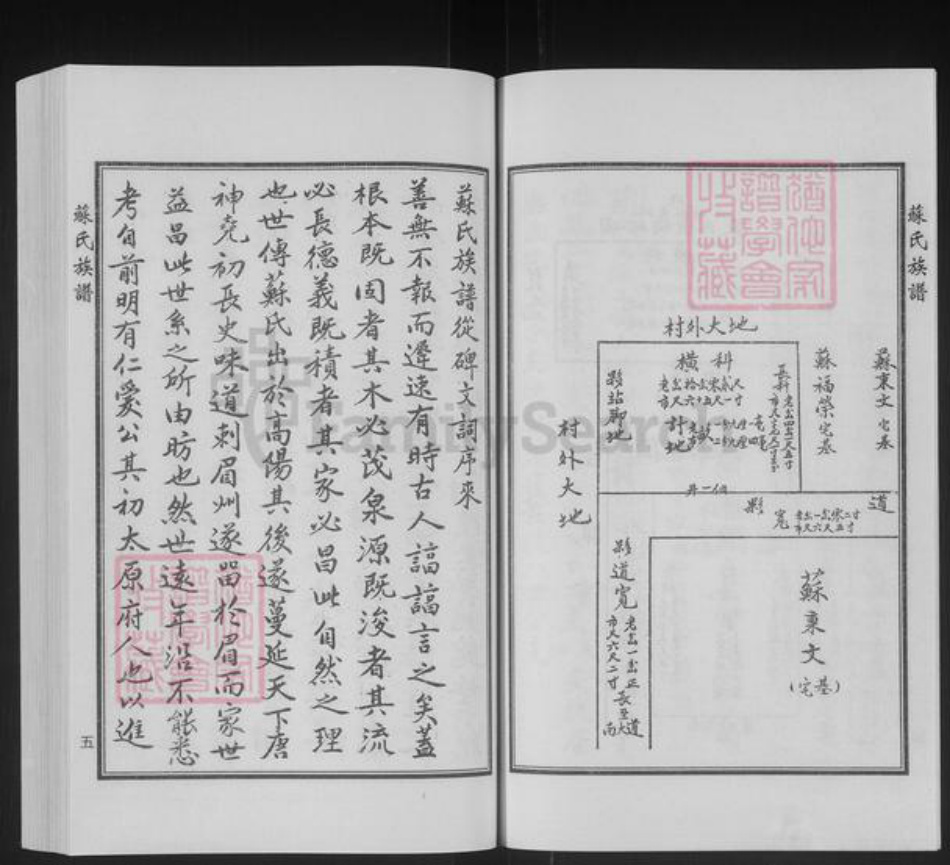 蘇氏族譜
蘇東文宅基
蘇福榮宅基
村外大地
橫科
計地
村外大地
井一個
道
寬
道寬
長至大道南
蘇東文
(宅基)
猶他家譜學會收藏
蘇氏族譜從碑文詞序來
善無不報而遲速有時古人諄諄言之矣蓋
根本既固者其木必茂泉源既浚者其流
必長德義既積者其家必昌此自然之理
也世傳蘇氏出於高陽其後遂蔓延天下唐
神堯初長史味道刺眉州遂留於眉而家世
益昌此世系之所由昉也然世遠年沿不能悉
考自前明有仁愛公其初太原府人也以進
猶他家譜學會收藏
蘇氏族譜
五
FamilySearch